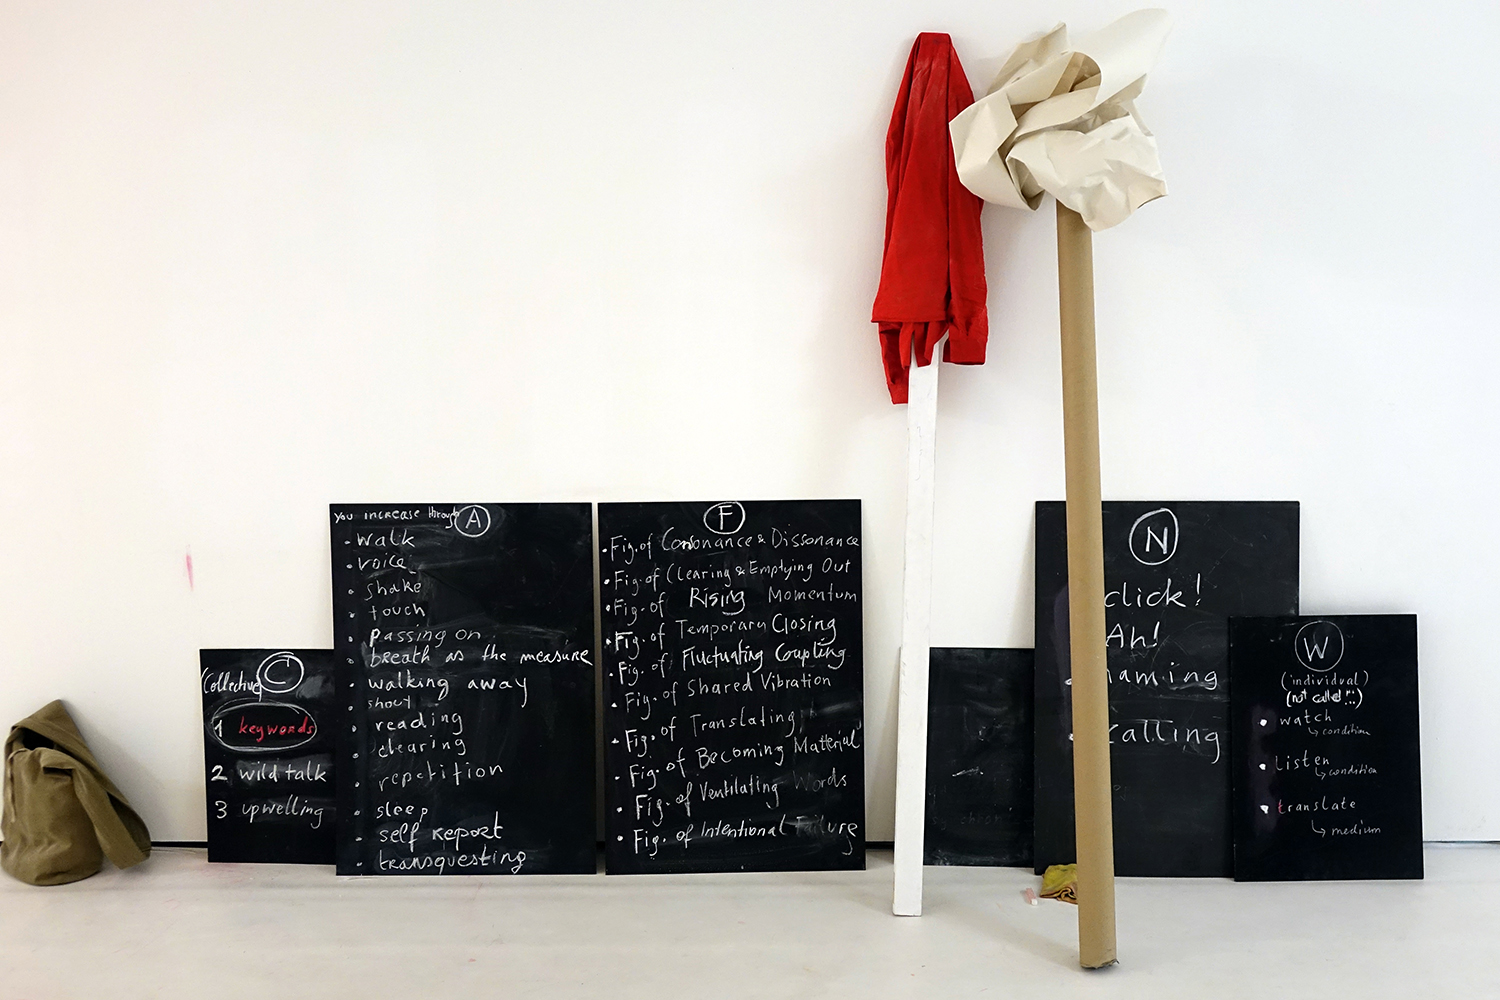 Collective C
1 keywords
2 wild talk
3 upwelling
you increase through A
- walk
- voice
shake
touch
passing on
breath as the measure
walking away
shout
reading
clearing
repetition
sleep
self report
transquesting
F
Fig. of Consonance & Dissonance
Fig. of Clearing & Emptying Out
Fig. of Rising Momentum
Fig. of Temporary Closing
Fig. of Fluctuating Coupling
Fig. of Shared Vibration
Fig. of Translating
Fig. of Becoming Material
Fig. of Ventilating Words
Fig. of Intentional Failure
N
click!
Ah!
naming
calling
W
(individual)
(not called !!!)
watch
↳ condition
listen
↳ condition
translate
↳ medium